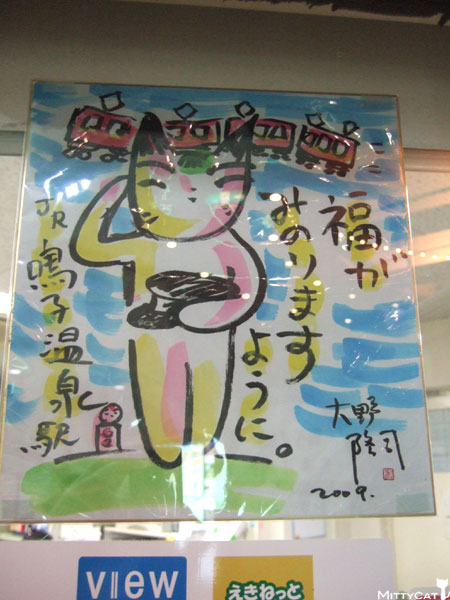 福が
みのります
ように。
JR鳴子温泉駅
大野隆司
2009.
VIEW
えきねっと
MITTYCAT